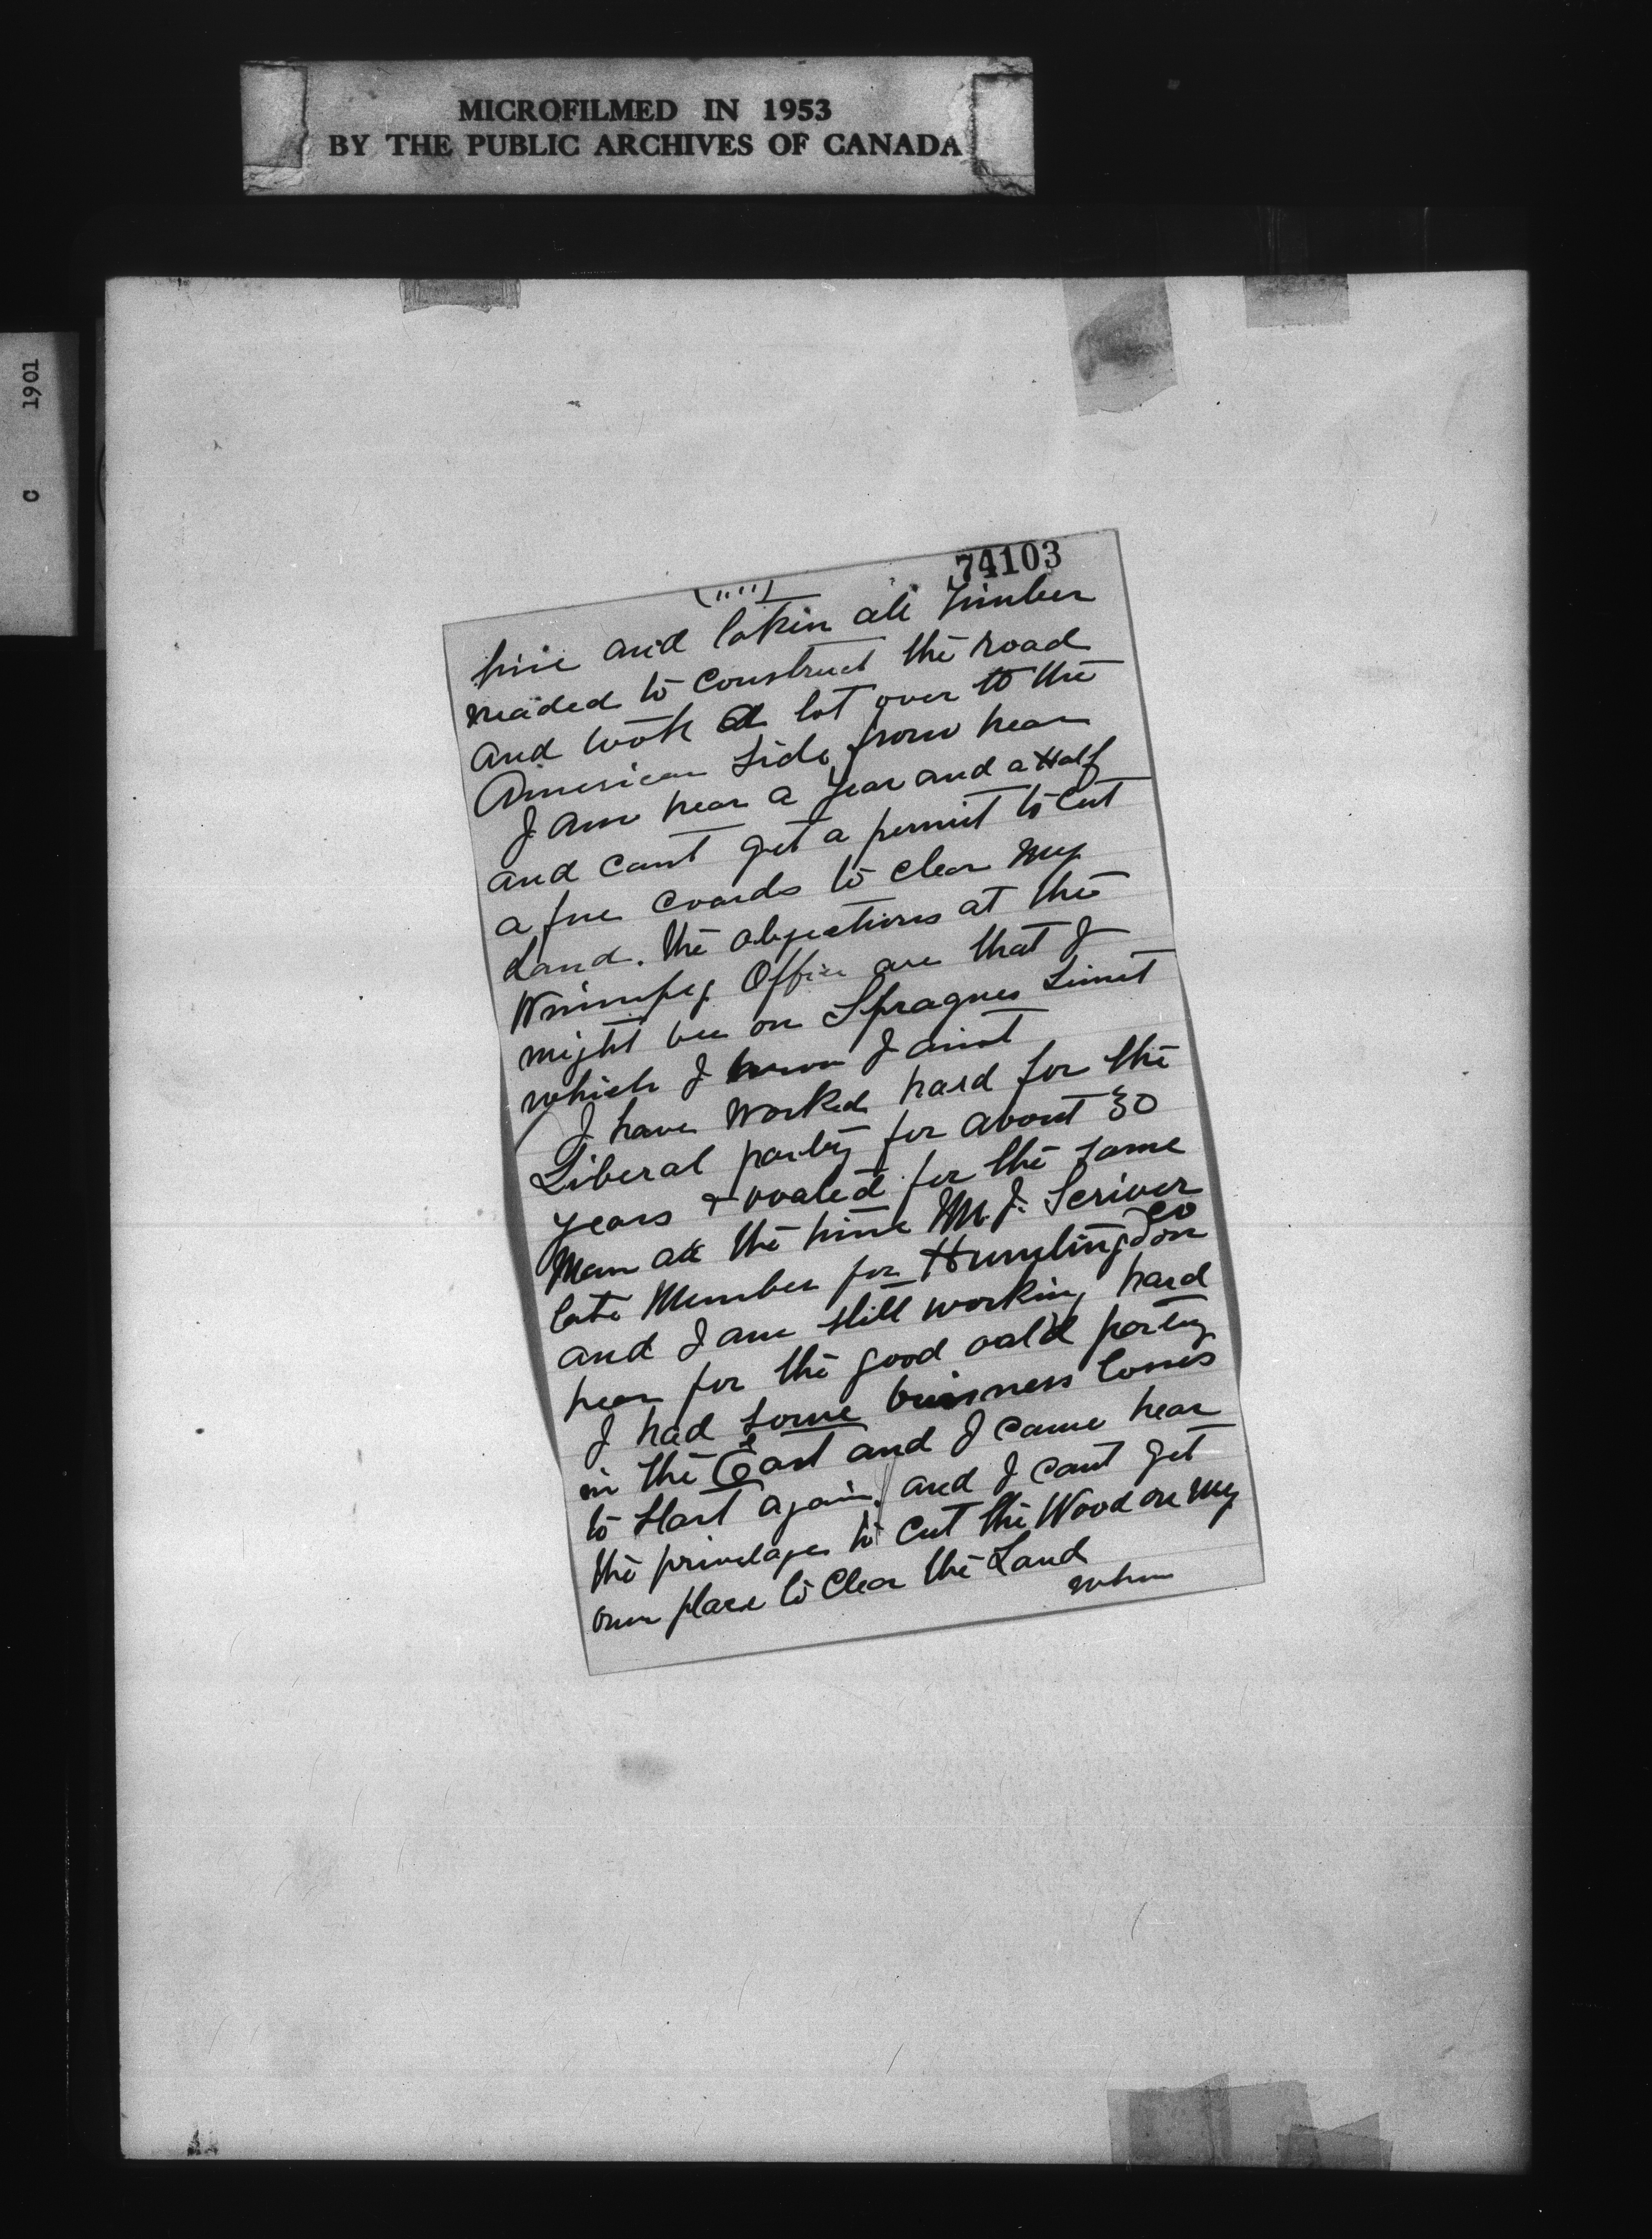 MICROFILMED IN 1953
BY THE PUBLIC ARCHIVES OF CANADA
C 1901
74103
and takin all timber
neaded to construct the road
and took a lot over to the
American side from hear
I am hear a year and a Half
and cant get a permit to cut
a few coards to clear my
Land. the objections at the
Winnipeg Office are that I
might bee on Spragues Limit
which I know I aint
I have worked hard for the
Liberal party for about 30
years + voated for the same
Man all the time Mr. J. Scriver
late Member for Huntingdon Co
and I am still working hard
hear for the good oald party
I had some buisness Losses
in the East and I came hear
to start again, and I cant get
the privelages to cut the Wood on my
own place to clear the Land
when